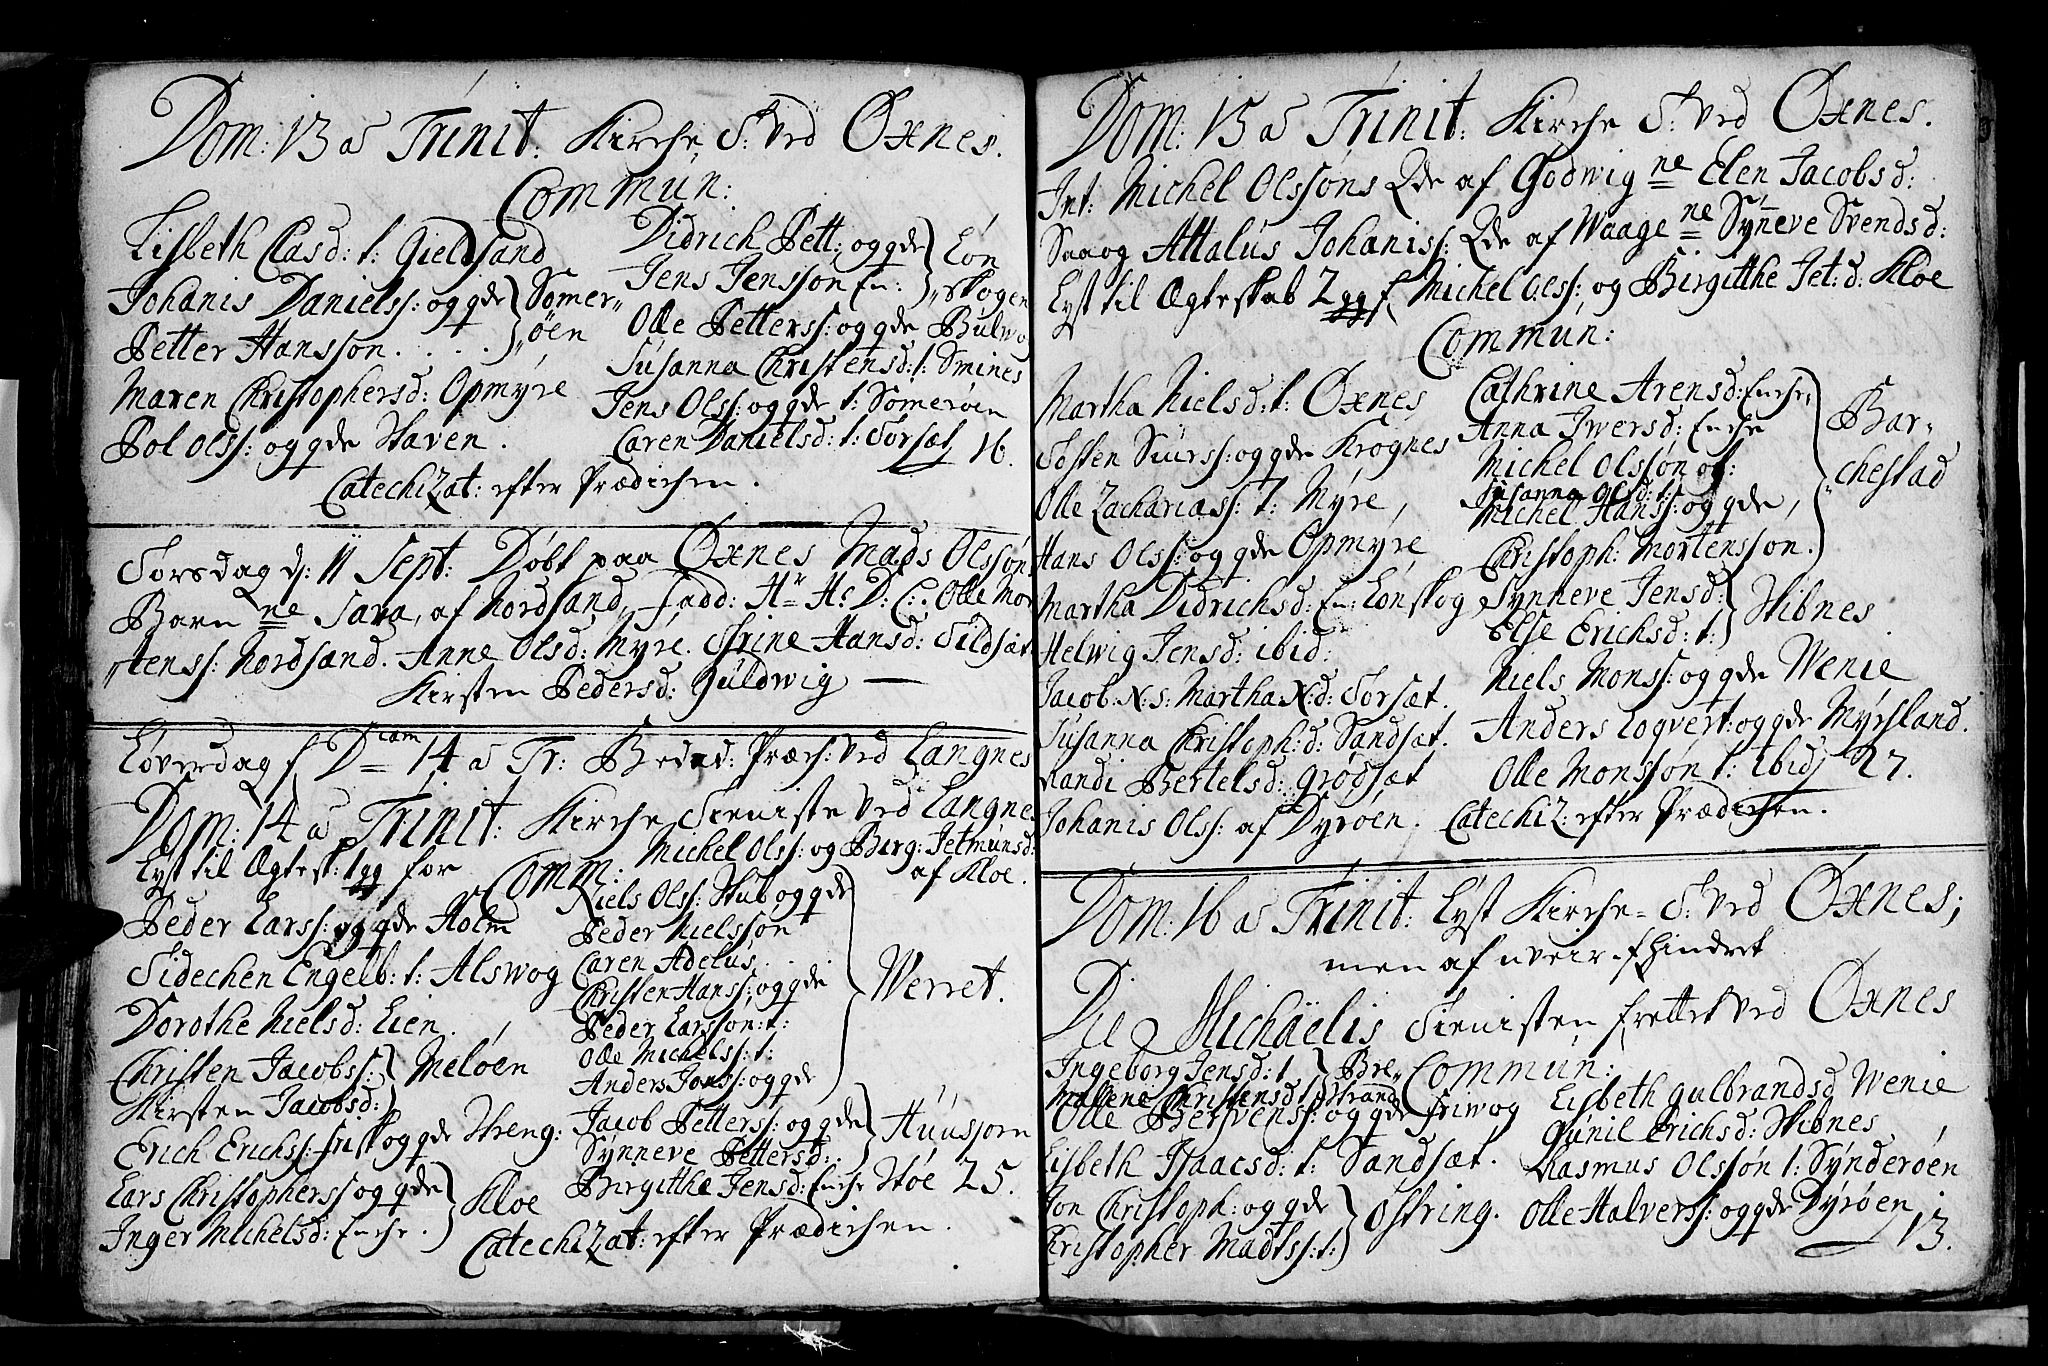 Dom: 13 a Trinit: Kirche S: ved Øxnes.
Commun:
Lisbeth Clasd: t: Gieldsand
Johanis Daniels: og qde } Sømer-
Petter Hansson . . . . } øen
Maren Christophersd: Opmyre
Pol Olss: og qde Haven .
Didrich Pett: og qde } Løn
Jens Jensson En: } skogen
Olle Petterss: og qde Bulwog
Susanna Christensd: t: Smines
Jens Olss: og qde t: Sømerøen
Caren Danielsd: t: Sorsæt 16.
Catechizat: efter Prædichen .
Torsdag d: 11 Sept: Døbt paa Øxnes Mads Olssøns
Barn ne Sara, af Nordsand, fadd: Hr Hs D: C: . Olle Mor
tenss: Nordsand. Anne Olsd: Myre. Trine Hansd: Sildsæt
Kirsten Pedersd: Guldwig —
Løverdag f. Dcam 14 a Tr: Præch: ved Langnes
Dom: 14 a Trinit: Kirche Tieniste ved Langnes
Lyst til Ægtesk: 1 gg for Michel Olss: og Birg: Jetmunsd:
af Kloe.
Comm:
Peder Larss: og qde Holm
Sidechen Engelb: t: Alswog
Dorothe Nielsd: Lien .
Christen Jacobss: } Meløen
Kirsten Jacobsd: }
Erich Erichss: frisk og qde Streng:
Lars Christopherss og qde } Kloe
Inger Michelsd: Enche . }
Niels Olss: Stub og qde
Peder Nielsson
Caren Adelus . .
Christen Hanss: og qde } Werret.
Peder Larsson: t:
Olle Michelss: t:
Anders Jonss: og qde
Jacob Petterss: og qde } Huusjorn
Synneve Pettersd: . }
Birgitthe Jensd: Enche Støe 25.
Catechizat: efter Prædichen .
Dom: 15 a Trinit: Kirche S: ved Øxnes.
Int: Michel Olssøns Qde af Godwig ne Elen Jacobsd:
Saaog Attalus Johanis: Qde af Waage ne Synneve Svendsd:
Lyst til Ægteskab 2 gg f. Michel Olss: og Birgitthe Jet: d: Kloe
Commun:
Martha Nielsd: t: Øxnes
Tosten Siurss: og qde Krognes
Olle Zachariass: t: Myre,
Hans Olss: og qde Opmyre
Martha Didrichsd: En: Lønskog
Helwig Jensd: ibid:
Jacob N: s: Martha N: d: Sorsæt.
Susanna Christoph: d: Sandsæt.
Randi Bertelsd: Grødsæt
Johanis Olss: af Dyrøen.
Cathrine Arensd: Enche,
Anna Iwersd: Enche
Michel Olsson og:
Susanna Olsd: t:
Michel Hanss: og qde,
Christoph: Mortensson .
} Bar-
chestad
Synneve Jensd: } Skibnes
Else Erichsd: t: }
Niels Monss: og qde Wenie
Anders Loqvert: og qde Myrsland.
Olle Monssøn t: ibid 27.
Catechiz: efter Prædichen .
Dom: 16 a Trinit: Lyst Kirche - S: ved Øxnes;
men af uveir fhindret
Die Michaëlis Tienisten frettet ved Øxnes
Commun:
Ingeborg Jensd: t. } Bre-
Mallene Christensd t } strand
Olle Bersvenss: og qde Friwog
Lisbeth Isaacsd: t: Sandsæt.
Jon Christoph: og qde } Østring.
Christopher Madtss: t: }
Lisbeth Gulbrandsd Wenie
Gunil Erichsd: Skibnes
Rasmus Olssøn t: Synderøen
Olle Halverss: og qde Dyrøen
13.